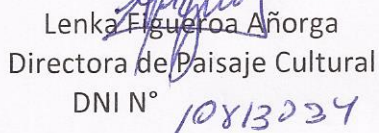 Lenka Figueroa Añorga
Directora de Paisaje Cultural
DNI N° 10813034